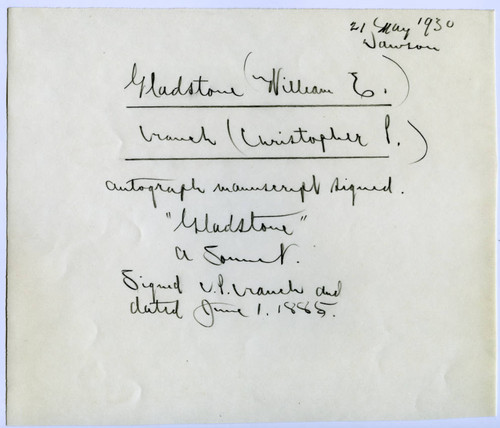 21 May 1930
Dawson
Gladstone (William E.)
Cranch (Christopher P.)
autograph manuscript signed.
"Gladstone"
A Sonnet.
Signed C.P. Cranch and
dated June 1. 1885.